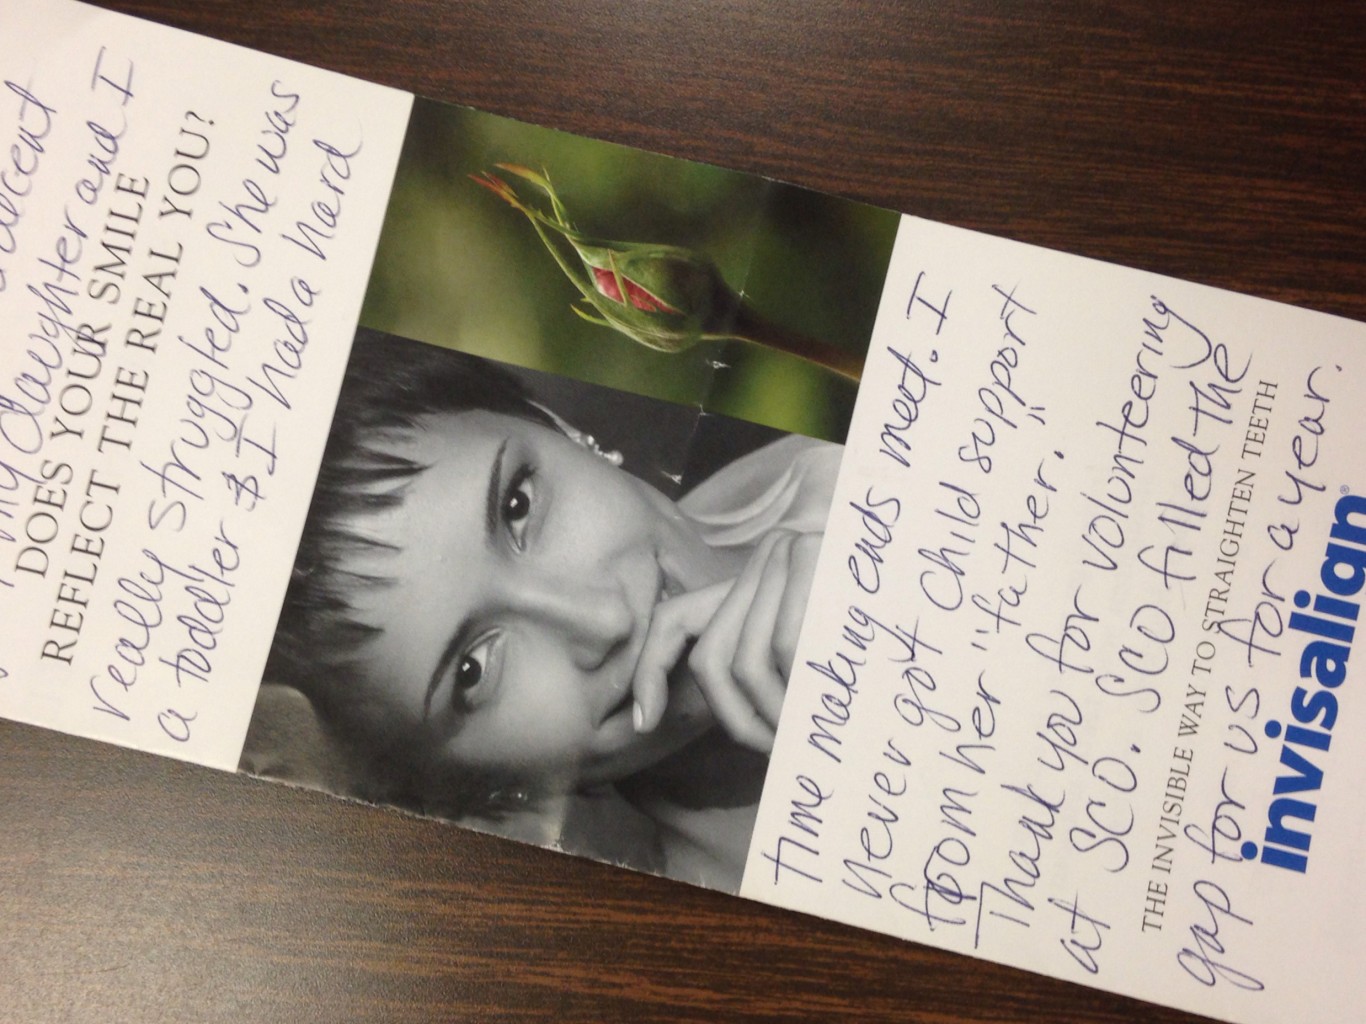 my daughter and I
DOES YOUR SMILE
REFLECT THE REAL YOU?
really struggled. She was
a toddler & I had a hard
time making ends meet. I
never got child support
from her "father."
Thank you for volunteering
at SCO. SCO filled the
THE INVISIBLE WAY TO STRAIGHTEN TEETH
gap for us for a year.
invisalign®